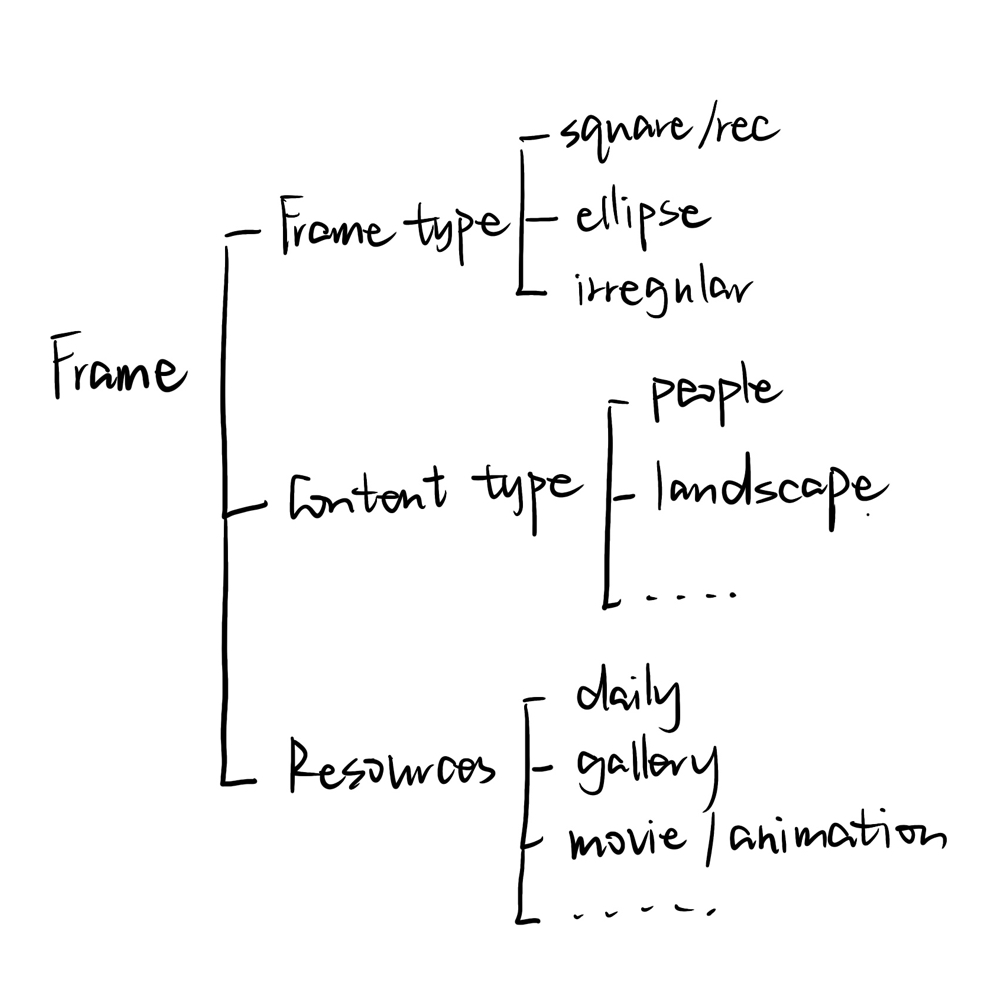 Frame
Frame type
square/rec
ellipse
irregular
Content type
people
landscape
.....
Resources
daily
gallery
movie/animation
.....